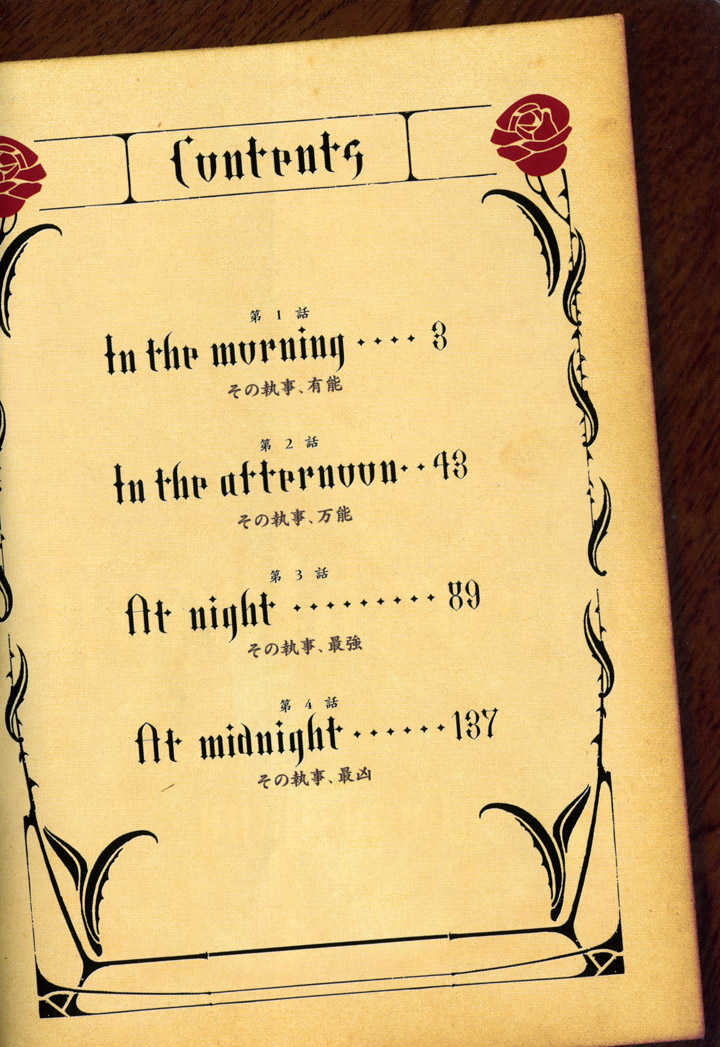 Contents
第1話
In the morning ････ 3
その執事、有能
第2話
In the afternoon･･43
その執事、万能
第3話
At night ･････････ 89
その執事、最強
第4話
At midnight ･･････137
その執事、最凶